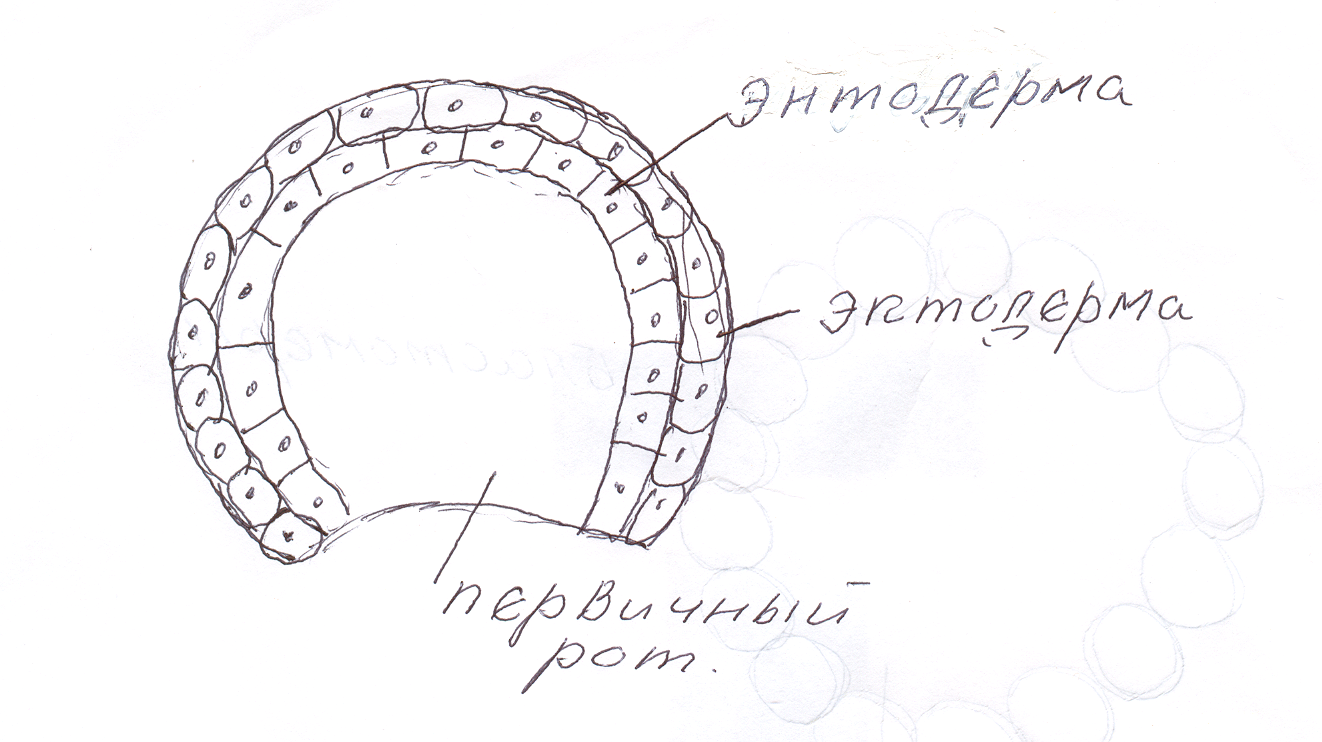 энтодерма
эктодерма
первичный
рот.